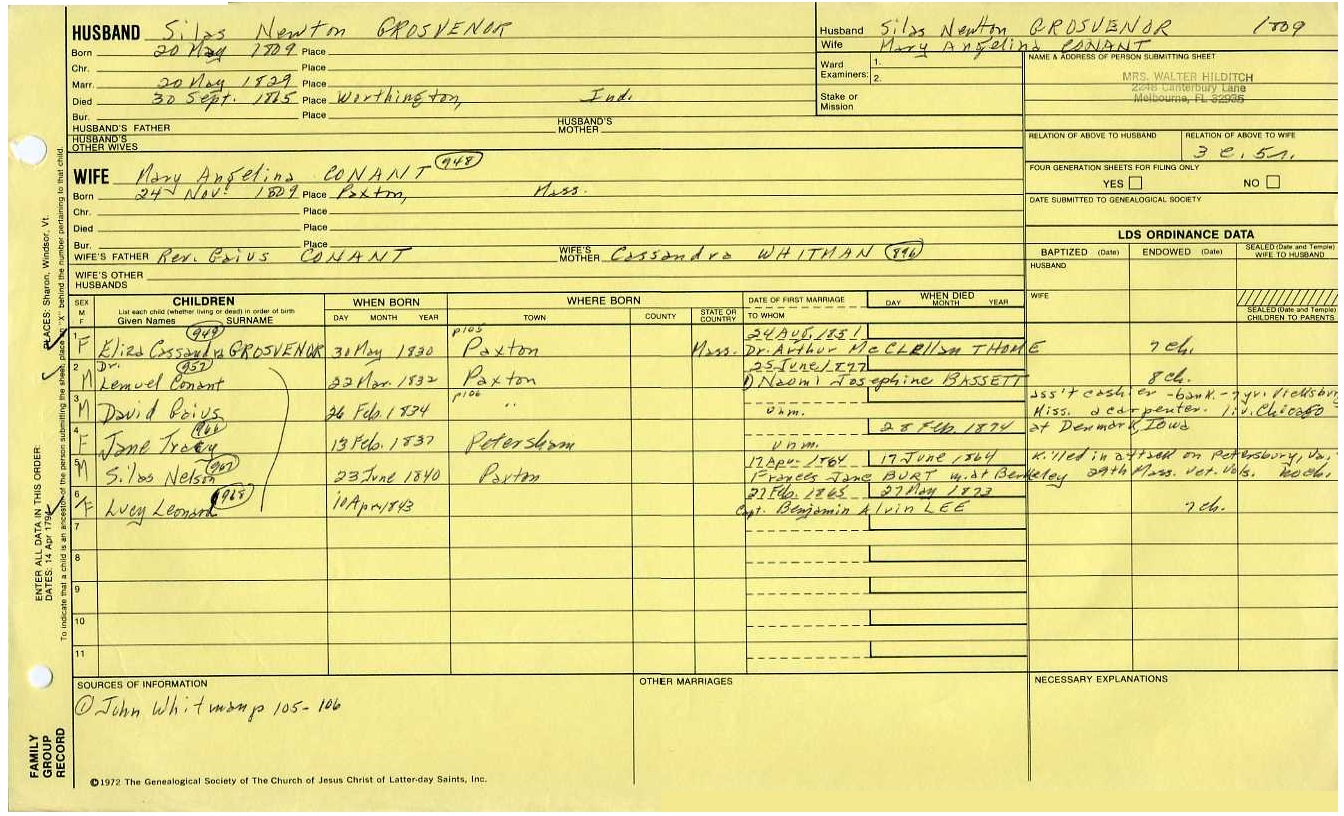 HUSBAND Silas Newton GROSVENOR
Born 20 May 1809 Place
Chr. Place
Marr. 20 May 1829 Place
Died 30 Sept. 1865 Place Worthington, Ind.
Bur. Place
HUSBAND'S FATHER HUSBAND'S MOTHER
HUSBAND'S OTHER WIVES
WIFE Mary Angelina CONANT 948
Born 24 Nov. 1809 Place Paxton, Mass.
Chr. Place
Died Place
Bur. Place
WIFE'S FATHER Rev. Gaius CONANT WIFE'S MOTHER Cassandra WHITMAN 896
WIFE'S OTHER HUSBANDS
Husband Silas Newton GROSVENOR 1809
Wife Mary Angelina CONANT
Ward Examiners: 1.
2.
Stake or Mission
NAME & ADDRESS OF PERSON SUBMITTING SHEET
MRS. WALTER HILDITCH
2248 Canterbury Lane
Melbourne, FL 32935
RELATION OF ABOVE TO HUSBAND RELATION OF ABOVE TO WIFE
3 c. 5r.
FOUR GENERATION SHEETS FOR FILING ONLY
YES NO
DATE SUBMITTED TO GENEALOGICAL SOCIETY
LDS ORDINANCE DATA
BAPTIZED (Date) ENDOWED (Date) SEALED (Date and Temple) WIFE TO HUSBAND
HUSBAND
WIFE
SEALED (Date and Temple) CHILDREN TO PARENTS
SEX M F CHILDREN WHEN BORN WHERE BORN DATE OF FIRST MARRIAGE WHEN DIED
List each child (whether living or dead) in order of birth
Given Names SURNAME DAY MONTH YEAR TOWN COUNTY STATE OR COUNTRY TO WHOM DAY MONTH YEAR
949 p105 24 Aug. 1851
1 F Eliza Cassandra GROSVENOR 30 May 1830 Paxton Mass. Dr. Arthur McClellan THOME 7 ch.
Dr. 957 25 June 1877
2 M Lemuel Conant 22 Mar. 1832 Paxton 1) Naomi Josephine BASSETT 8 ch.
p106 ass't cashier - bank - 7 yr. Vicksburg
3 M David Gaius 26 Feb. 1834 " unm. Miss. a carpenter. liv. Chicago
28 Feb. 1874 at Denmark, Iowa
4 F Jane Tracy 13 Feb. 1837 Petersham unm.
967 17 Apr. 1864 17 June 1864 killed in attack on Petersburg, Va.
5 M Silas Nelson 23 June 1840 Paxton Frances Jane BURT m. at Berkeley 29th Mass. Vet. Vols. no ch.
968 27 Feb. 1865 27 May 1873
6 F Lucy Leonard 10 Apr 1843 Capt. Benjamin Alvin LEE 7 ch.
7
8
9
10
11
SOURCES OF INFORMATION
① John Whitman p 105-106
OTHER MARRIAGES
NECESSARY EXPLANATIONS
©1972 The Genealogical Society of The Church of Jesus Christ of Latter-day Saints, Inc.
FAMILY
GROUP
RECORD
ENTER ALL DATA IN THIS ORDER:
DATES: 14 Apr 1794 PLACES: Sharon, Windsor, Vt.
To indicate that a child is an ancestor of the person submitting the sheet, place an "X" behind the number pertaining to that child.